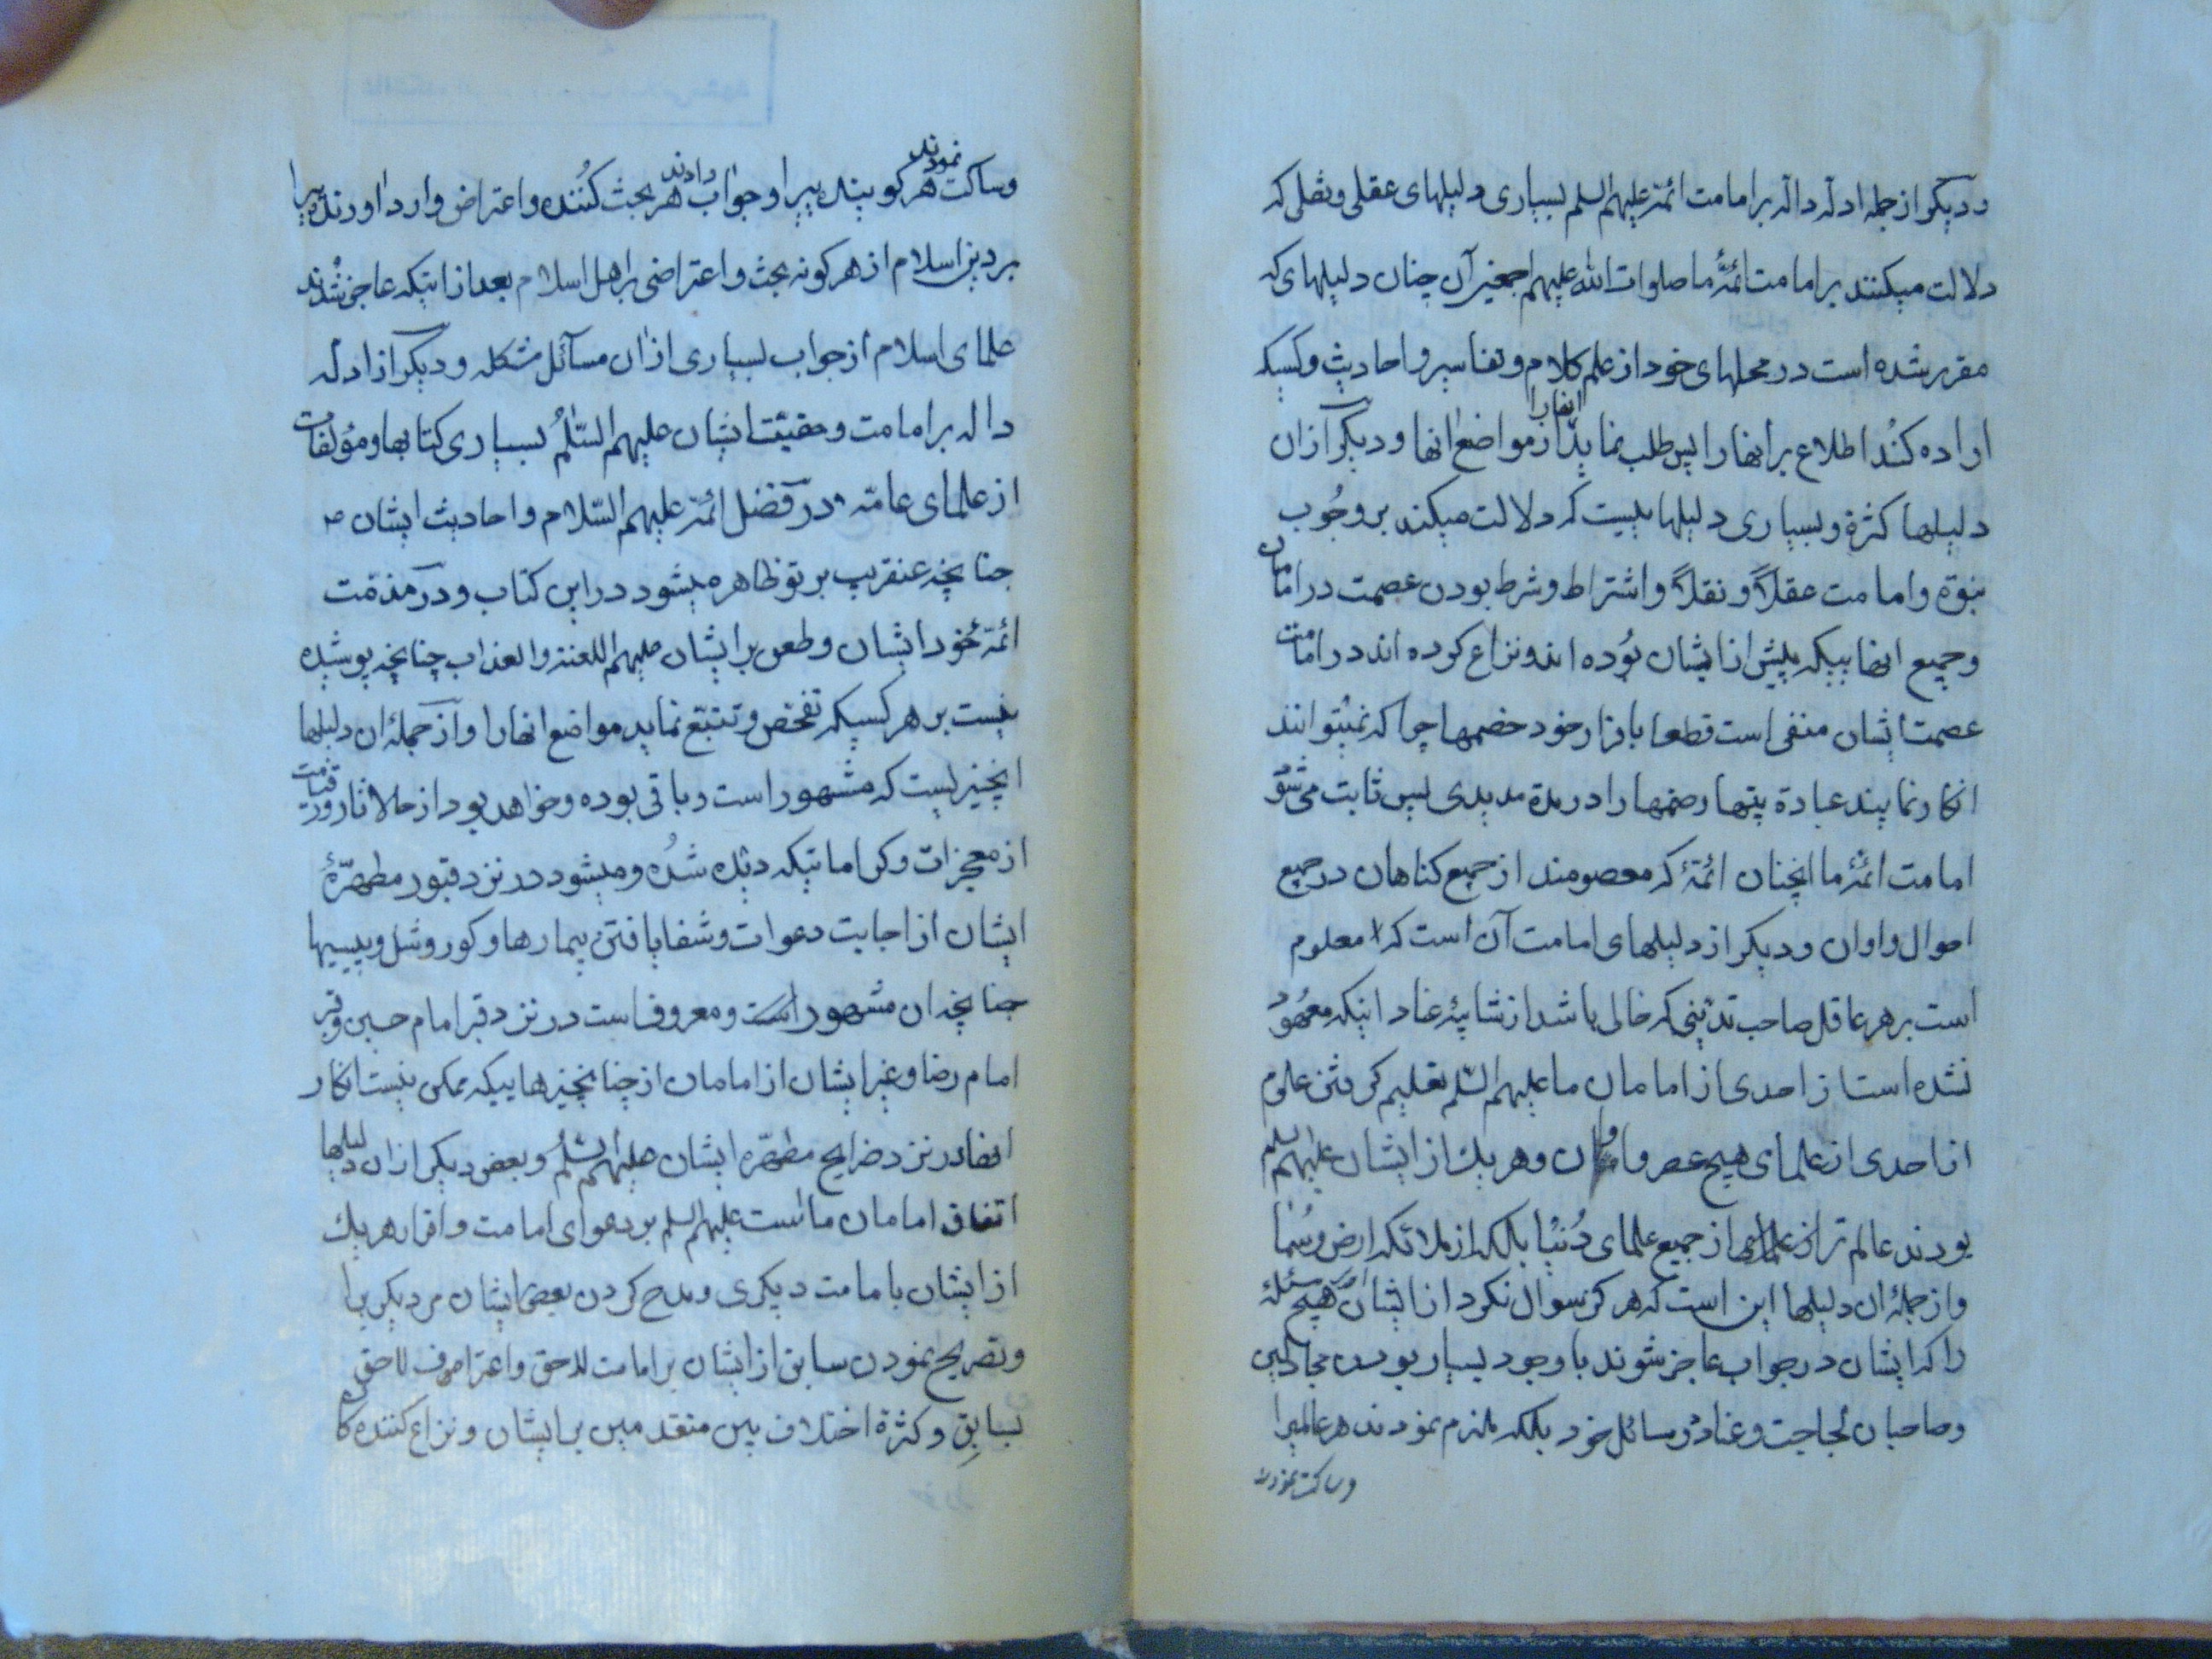 و دیگر از جمله ادلّه دالّه بر امامت ائمّه علیهم السلم بسیاری دلیلهای عقلی و نقلی که
دلالت میکنند بر امامت ائمّهٔ ما صلوات الله علیهم اجمعین آن چنان دلیلهای که
مقرر شده است در محلهای خود از علم کلام و تفاسیر و احادیث و کسیکه
اراده کند اطلاع بر انها را پس طلب نماید انها را از مواضع انها و دیگر از ان
دلیلها کثرة و بسیاری دلیلهاییست که دلالت میکند بر وجُوب
نبوّة و امامت عقلاً و نقلاً و اشتراط و شرط بودن عصمت در امامان
و جمیع انهاییکه پیش از ایشان بوُده اند و نزاع کرده اند در امامت
عصمت ایشان منفی است قطعا باقرار خود خصمها چرا که نمیتوانند
انکار نمایند عبادة بتها و صنمها را در مدة مدیدی پس ثابت می شود
امامت ائمّهٔ ما انچنان ائمّهٔ که معصومند از جمیع کناهان در جمیع
احوال و اوان و دیکر از دلیلهای امامت آن است که معلوم
است بر هر عاقل صاحب تدیّنی که خالی باشد از شایبهٔ عناد اینکه معهُود
نشده است از احدی از امامان ما علیهم السّلم تعلیم کرفتن علوم
از احدی از علمای هیچ عصر و اوان و هر یك از ایشان علیهم السلم
بودند عالم تر از جمیع علمای دُنیا بلکه از ملائکه ارض و سُما
و از جملهٔ ان دلیلها این است که هر کز سوال نکرد از ایشان احدی هیچ مسئلهٔ
را که ایشان در جواب عاجز شوند با وجود بسیار بودن مجادلین
و صاحبان لجاجت و عناد و مسائل خود بلکه ملزم نمودند هر عالمیرا
و ساکت نمودند
و ساکت نمودند هر کوینده ییرا و جواب دادند هر بحث کُننده و اعتراض وارد اورنده ییرا
بر دین اسلام از هر کونه بحث و اعتراضی بر اهل اسلام بعد از اینکه عاجز شدند
علمای اسلام از جواب بسیاری از ان مسآئل مشکله و دیکر از ادله
داله بر امامت و حقیّت ایشان علیهم السّلمُ بسیاری کتابها و مؤلفات
از علمای عامّه در فضل ائمّه علیهم السّلام و احادیث ایشان
چنانچه عنقریب بر تو ظاهر میشود در این کتاب و در مذمّت
ائمّهٔ خود ایشان و طعن بر ایشان علیهم اللعنة و العذاب چنانچه پوشیده
نیست بر هر کسیکه تفحّص و تتبّع نماید مواضع انها را و از جملهٔ ان دلیلها
انچیزیست که مشهور است و باقی بوده و خواهد بود از حالا تا روز قیامت
از معجزات و کراماتیکه دیده شُده و میشود در نزد قبور مطهّرهٔ
ایشان از اجابت دعوات و شفا یافتن بیمارها و کور و شل و پیسیها
چنانچه ان مشهور است و معروفست در نزد قبر امام حسین و قبر
امام رضا و غیر ایشان از امامان از چنانچیزهاییکه ممکن نیست انکار
انها در نزد ضرایح مطهّره ایشان علیهم السّلمُ و بعض دیکر از ان دلیلها
اتفاق امامان ماست علیهم السلم بر دعوای امامت و اقرار هر یك
از ایشان بامامت دیکری و مدح کردن بعضی ایشان مر دیکریرا
و تصریح نمودن سابق از ایشان بر امامت لاحق و اعتراف لاحق
بسابق و کثرة اختلاف بین متقدمین بر ایشان و نزاع کننده کا